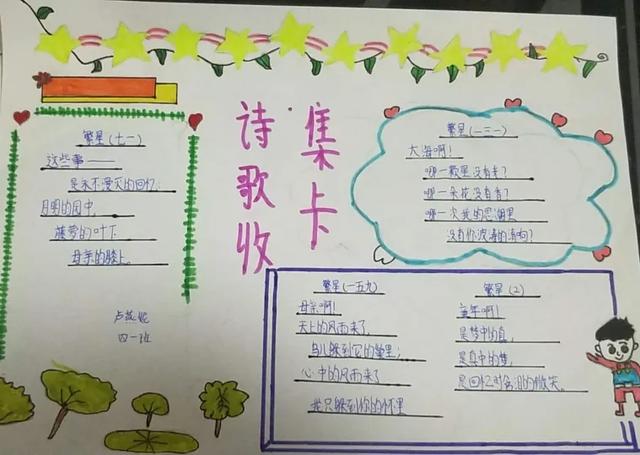 诗歌收
集卡
繁星(七一)
这些事——
是永不漫灭的回忆;
月明的园中,
藤萝的叶下,
母亲的膝上。
四一班
繁星(一三一)
大海啊!
哪一颗星没有光?
哪一朵花没有香?
哪一次我的思潮里
没有你波涛的清响?
繁星(一五九)
母亲啊!
天上的风雨来了,
鸟儿躲到它的巢里;
心中的风雨来了
我只躲到你的怀里
繁星(2)
童年啊!
是梦中的真,
是真中的梦,
是回忆时含泪的微笑。